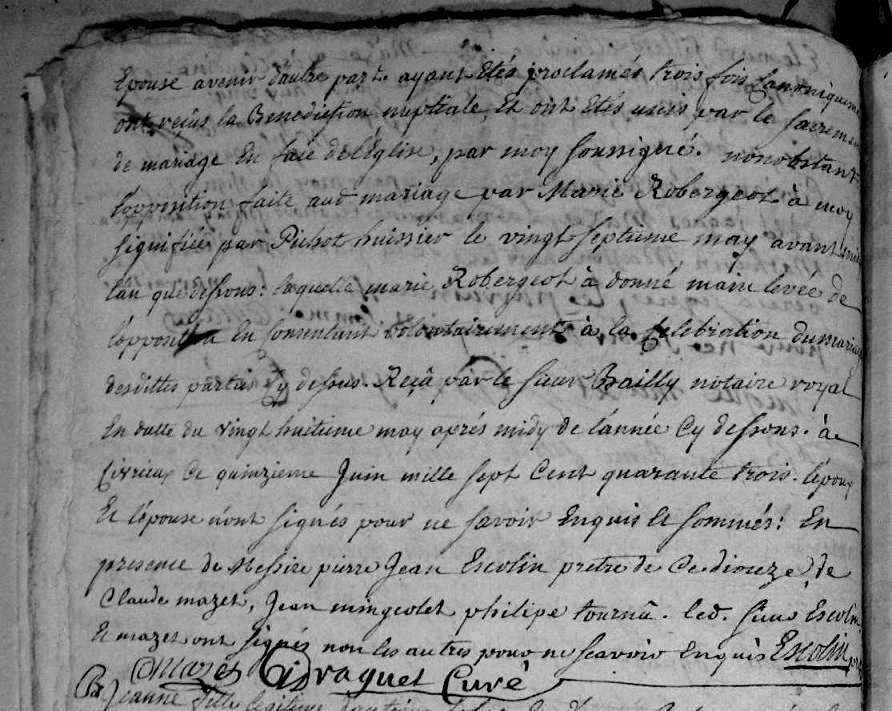 Epouse avenir dautre part ayant Etés proclamés trois fois Canoniqueme
ont reçus la Benediction nuptiale, Et ont Etés unis par le sacremen
de mariage En face de l'Eglise, par moy soussigné. nonobstant
l'opposition faite aud mariage par Marie Robergeot à moy
signifiée par Pichot huissier le vingt septieme may avant midi
l'an que dessous: laquelle marie Robergeot à donné main levée de
l'opposit a En Consentant volontairement à la Celebration du mariage
desdittes parties Cy dessus. Reçû par le sieur Bailly notaire royal
En datte du vingt huitieme may aprés midy de l'année Cy dessous. à
Civrieux Ce quinzieme Juin mille sept Cent quarante trois. l'époux
Et l'épouse n'ont signés pour ne sçavoir Enquis Et sommés: En
presence de Messire pierre Jean Escolin pretre de Ce dioceze, de
Claude mazet, Jean mingeolet philipe tournû. led. sieur Escolin
Et mazet ont signés non les autres pour ne sçavoir Enquis Escolin
Mazet Draguet Curé
Jeanne fille legitime